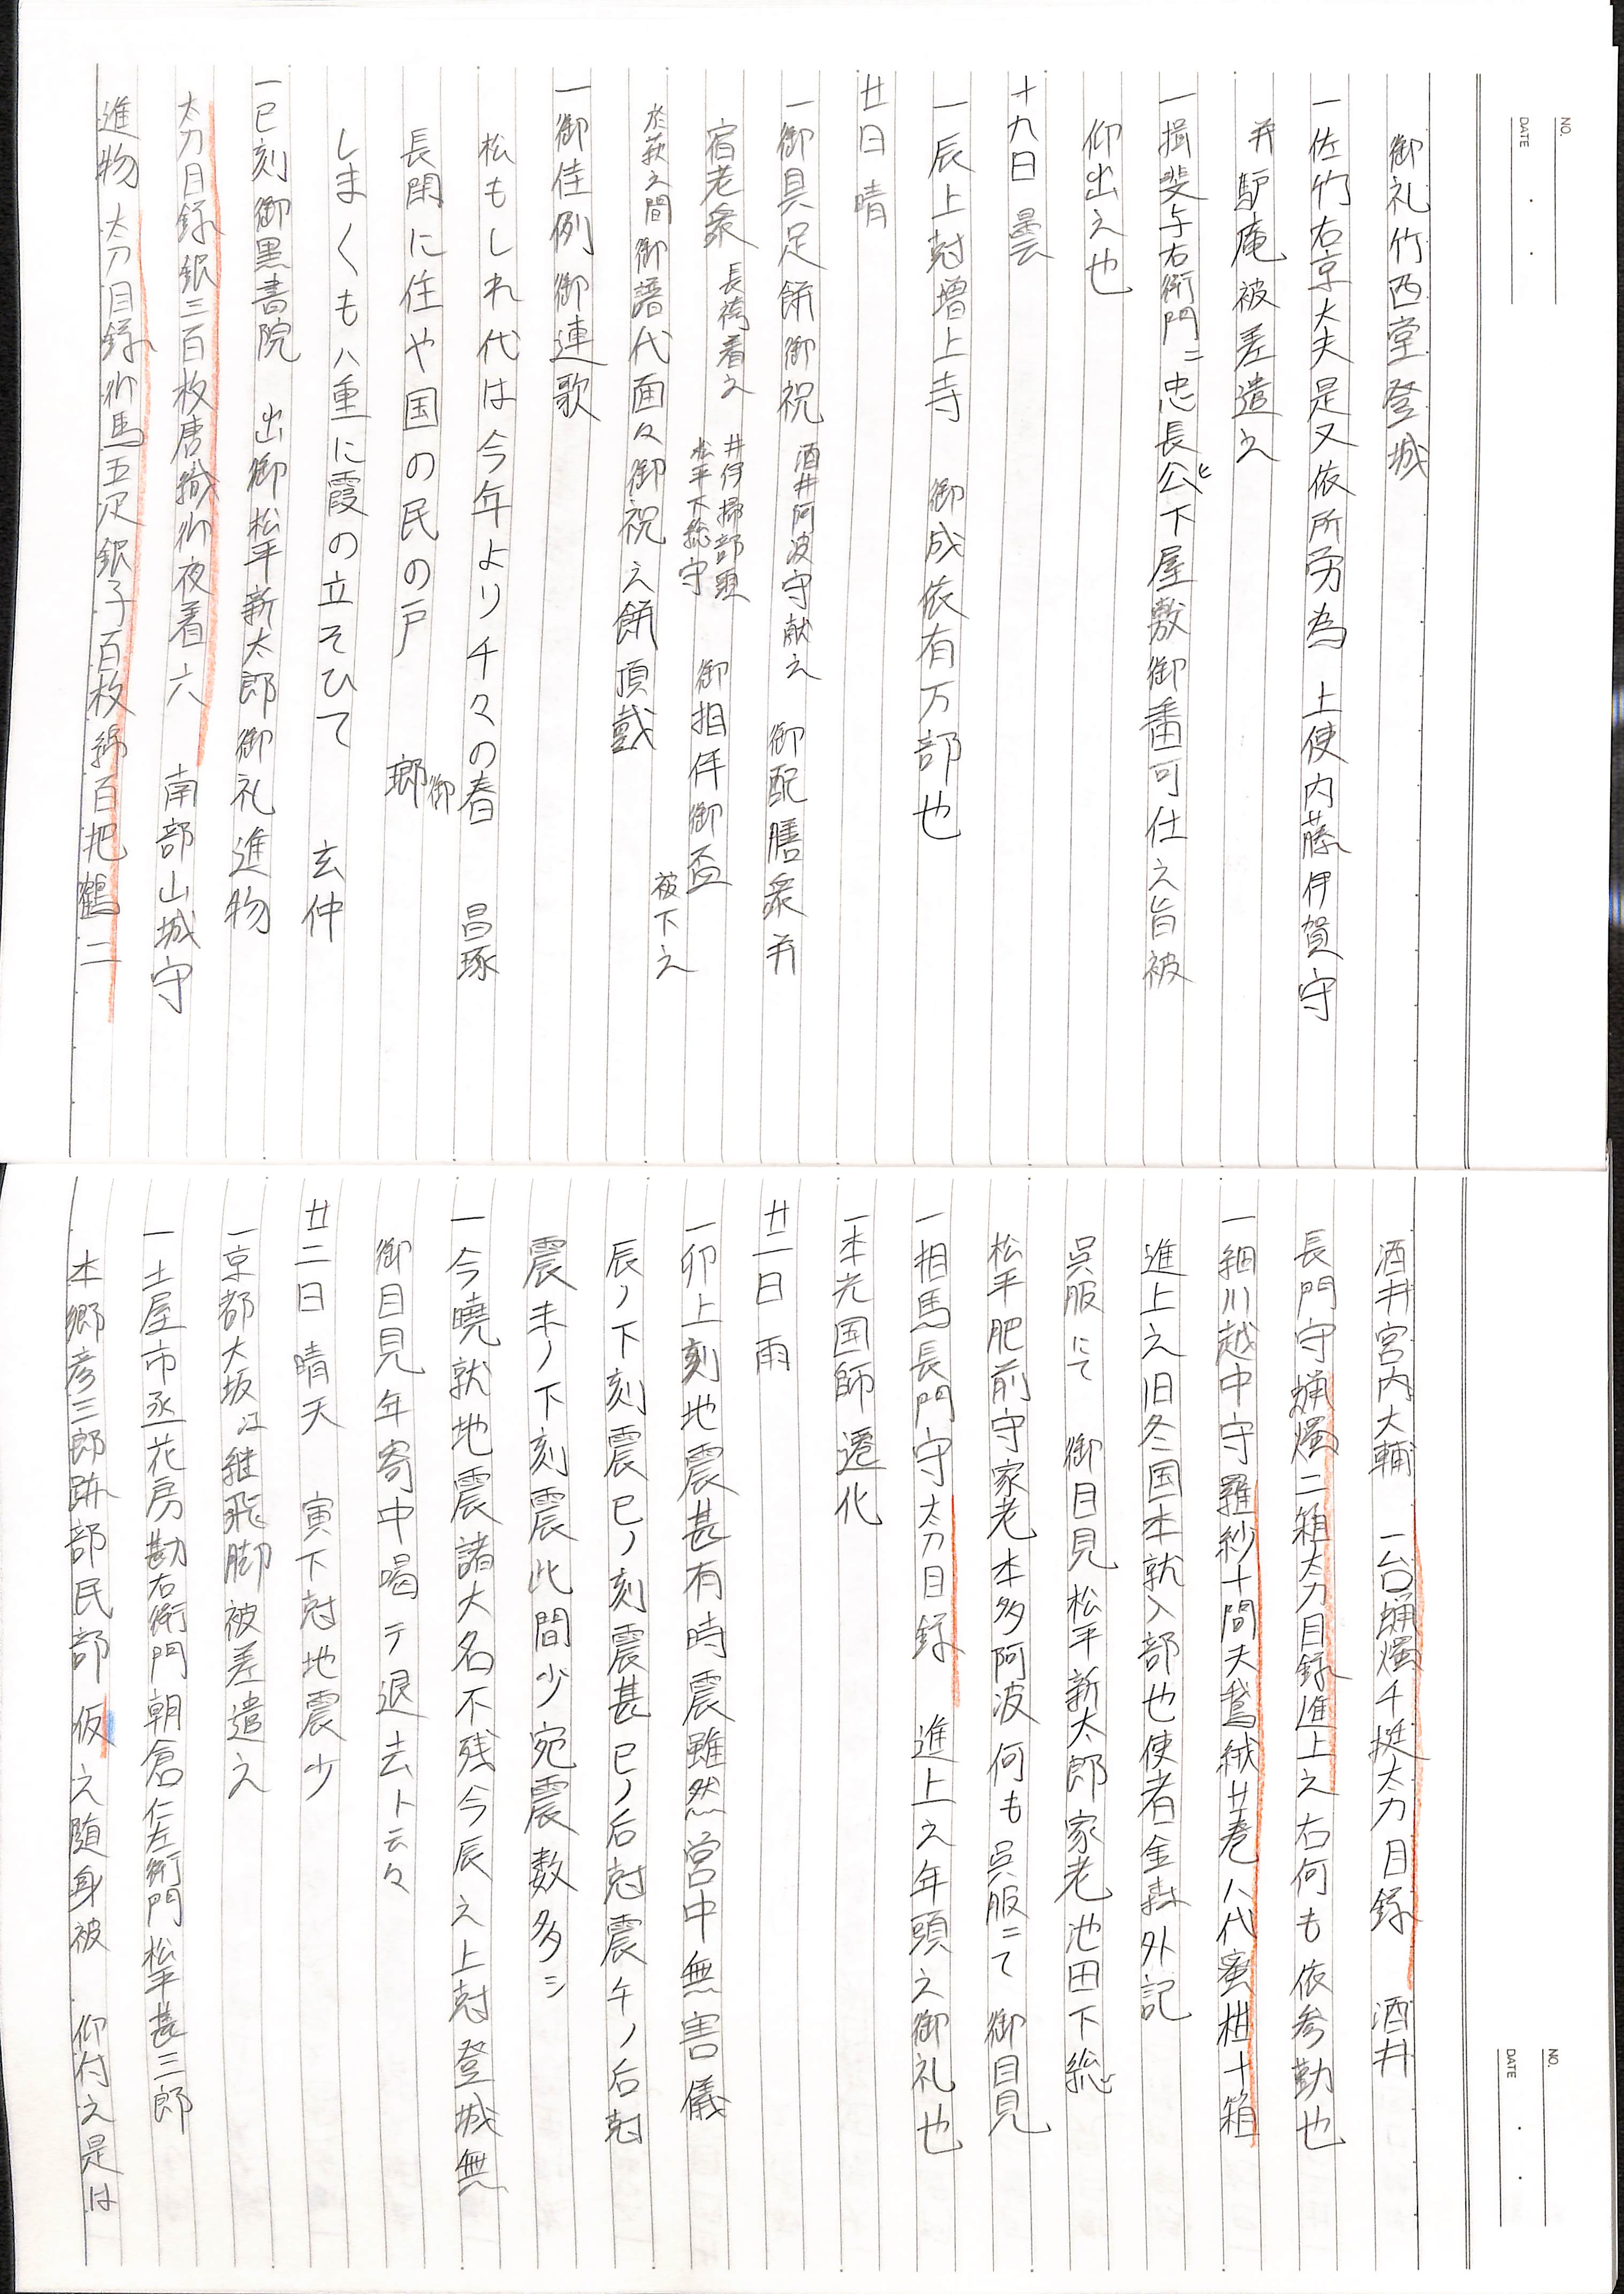 NO.
DATE
御礼竹西堂登城
一佐竹右京大夫是又依所労為 上使内藤伊賀守
并驢庵被差遣之
一揖斐与右衛門ニ忠長公ヒ下屋敷御番可仕之旨被
仰出之也
十九日 曇
一辰上尅増上寺 御成依有万部也
廿日 晴
一御具足餅御祝 酒井阿波守献之 御配膳衆并
宿老衆 長袴着之 井伊掃部頭 松平下総守 御相伴御盃 被下之
於萩之間御譜代面々御祝之餅頂戴
一御佳例御連歌
松もしれ代は今年より千々の春 昌琢
長閑に住や国の民の戸 御
しまくも八重に霞の立そひて 玄仲
一巳刻御黒書院 出御松平新太郎御礼進物
太刀目録銀三百枚唐織御夜着六 南部山城守
進物太刀目録御馬五疋銀子百枚綿百把鶴二
NO.
DATE
酒井宮内大輔 一台蝋燭千挺太刀目録 酒井
長門守蝋燭二箱太刀目録進上之右何も依参勤也
一細川越中守羅紗十間天鵞絨廿巻八代蜜柑十箱
進上之旧冬国本就入部也使者金森外記
呉服にて 御目見松平新太郎家老池田下総
松平肥前守家老本多阿波何も呉服ニて御目見
一相馬長門守太刀目録 進上之年頭之御礼也
一本光国師遷化
廿一日 雨
一卯上刻地震甚有時震雖然営中無害儀
辰ノ下刻震巳ノ刻震甚巳ノ后尅震午ノ后尅
震未ノ下刻震此間少宛震数多シ
一今暁就地震諸大名不残今辰之上尅登城無
御目見年寄中喝テ退去ト云々
廿二日 晴天 寅下尅地震少
一京都大坂江継飛脚被差遣之
一土屋市丞花房勘右衛門朝倉仁左衛門松平甚三郎
本郷彦三郎跡部民部 仮之随身被 仰付之是は